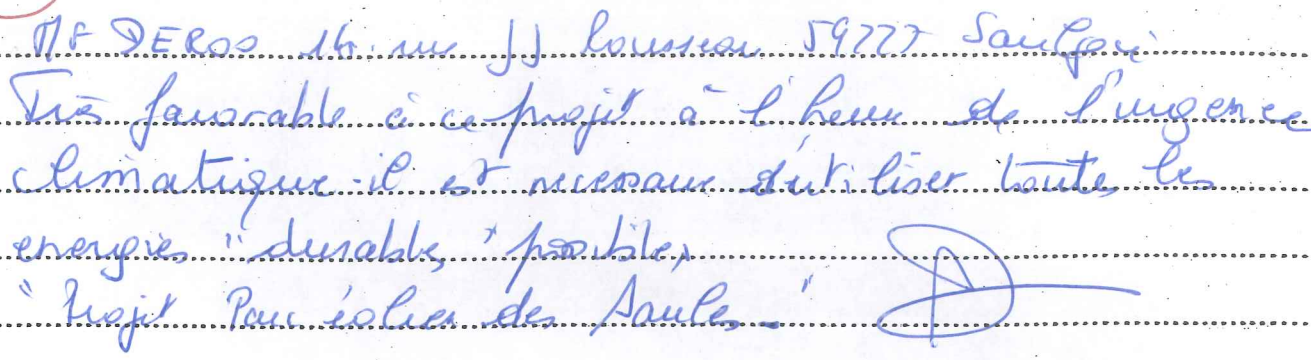 MF DEROO 14 rue JJ Rousseau 59227 Saulzoir
Très favorable à ce projet à l'heure de l'urgence
climatique il est necessaire d'utiliser toutes les
energies "durables" possibles
"Projet Parc éolien des Saules"